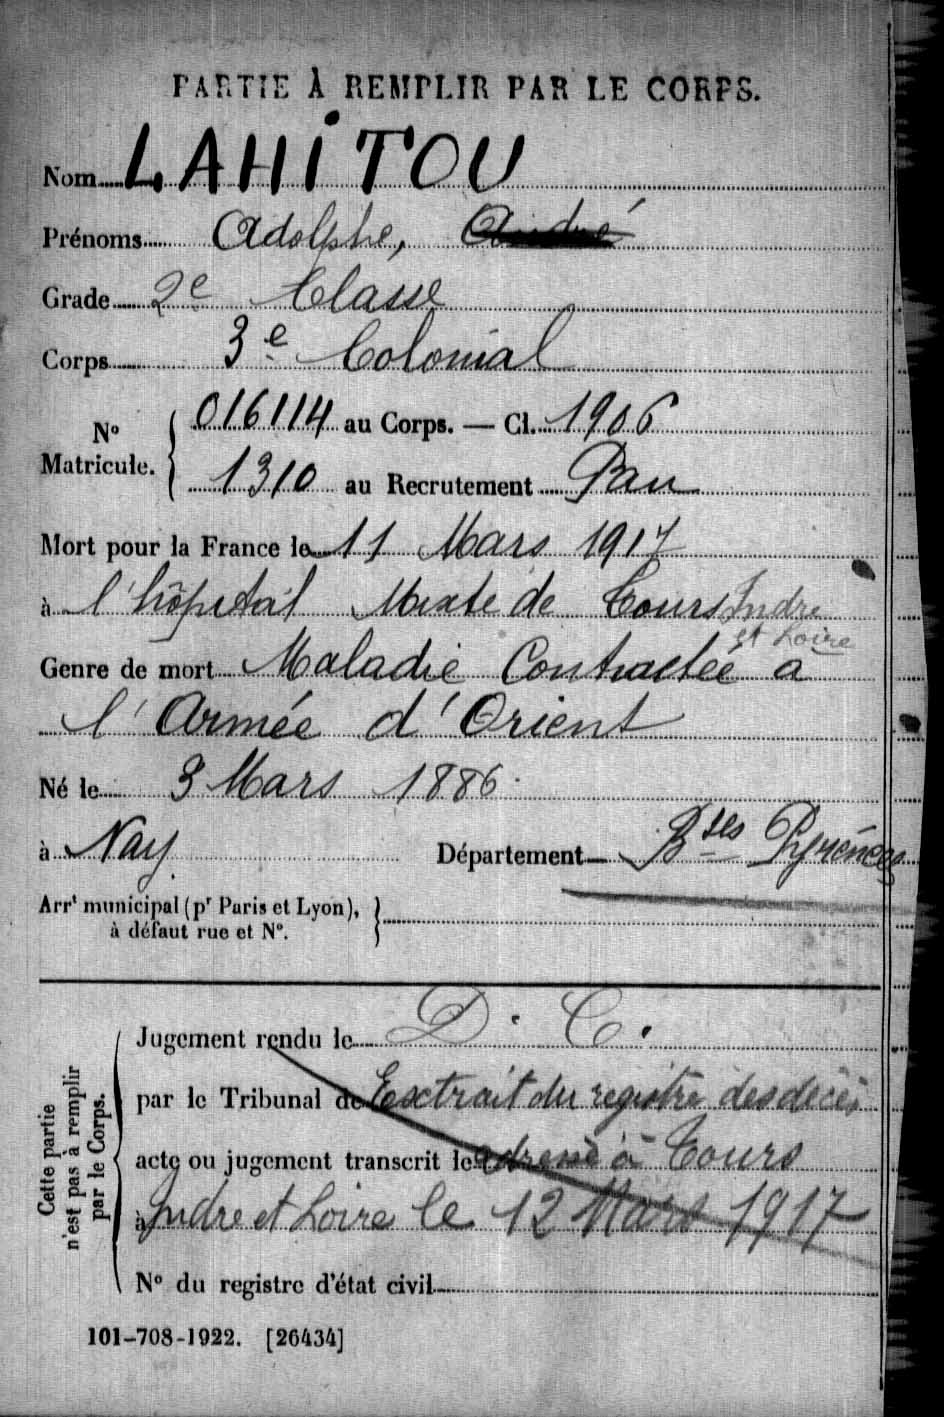 PARTIE À REMPLIR PAR LE CORPS.
Nom LAHITOU
Prénoms Adolphe, André
Grade 2e Classe
Corps 3e Colonial
N° Matricule. { 016114 au Corps. — Cl. 1906
1310 au Recrutement Pau
Mort pour la France le 11 Mars 1917
à l'hôpital Mixte de Tours Indre
et Loire
Genre de mort Maladie Contractée a
l'Armée d'Orient
Né le 3 Mars 1886
à Nay Département Bses Pyrénées
Arrt municipal (pr Paris et Lyon), }
à défaut rue et N°.
Cette partie
n'est pas à remplir
par le Corps.
Jugement rendu le D. C.
par le Tribunal de Extrait du registre des décès
acte ou jugement transcrit le adressé à Tours
à Indre et Loire le 12 Mars 1917
N° du registre d'état civil
101-708-1922. [26434]